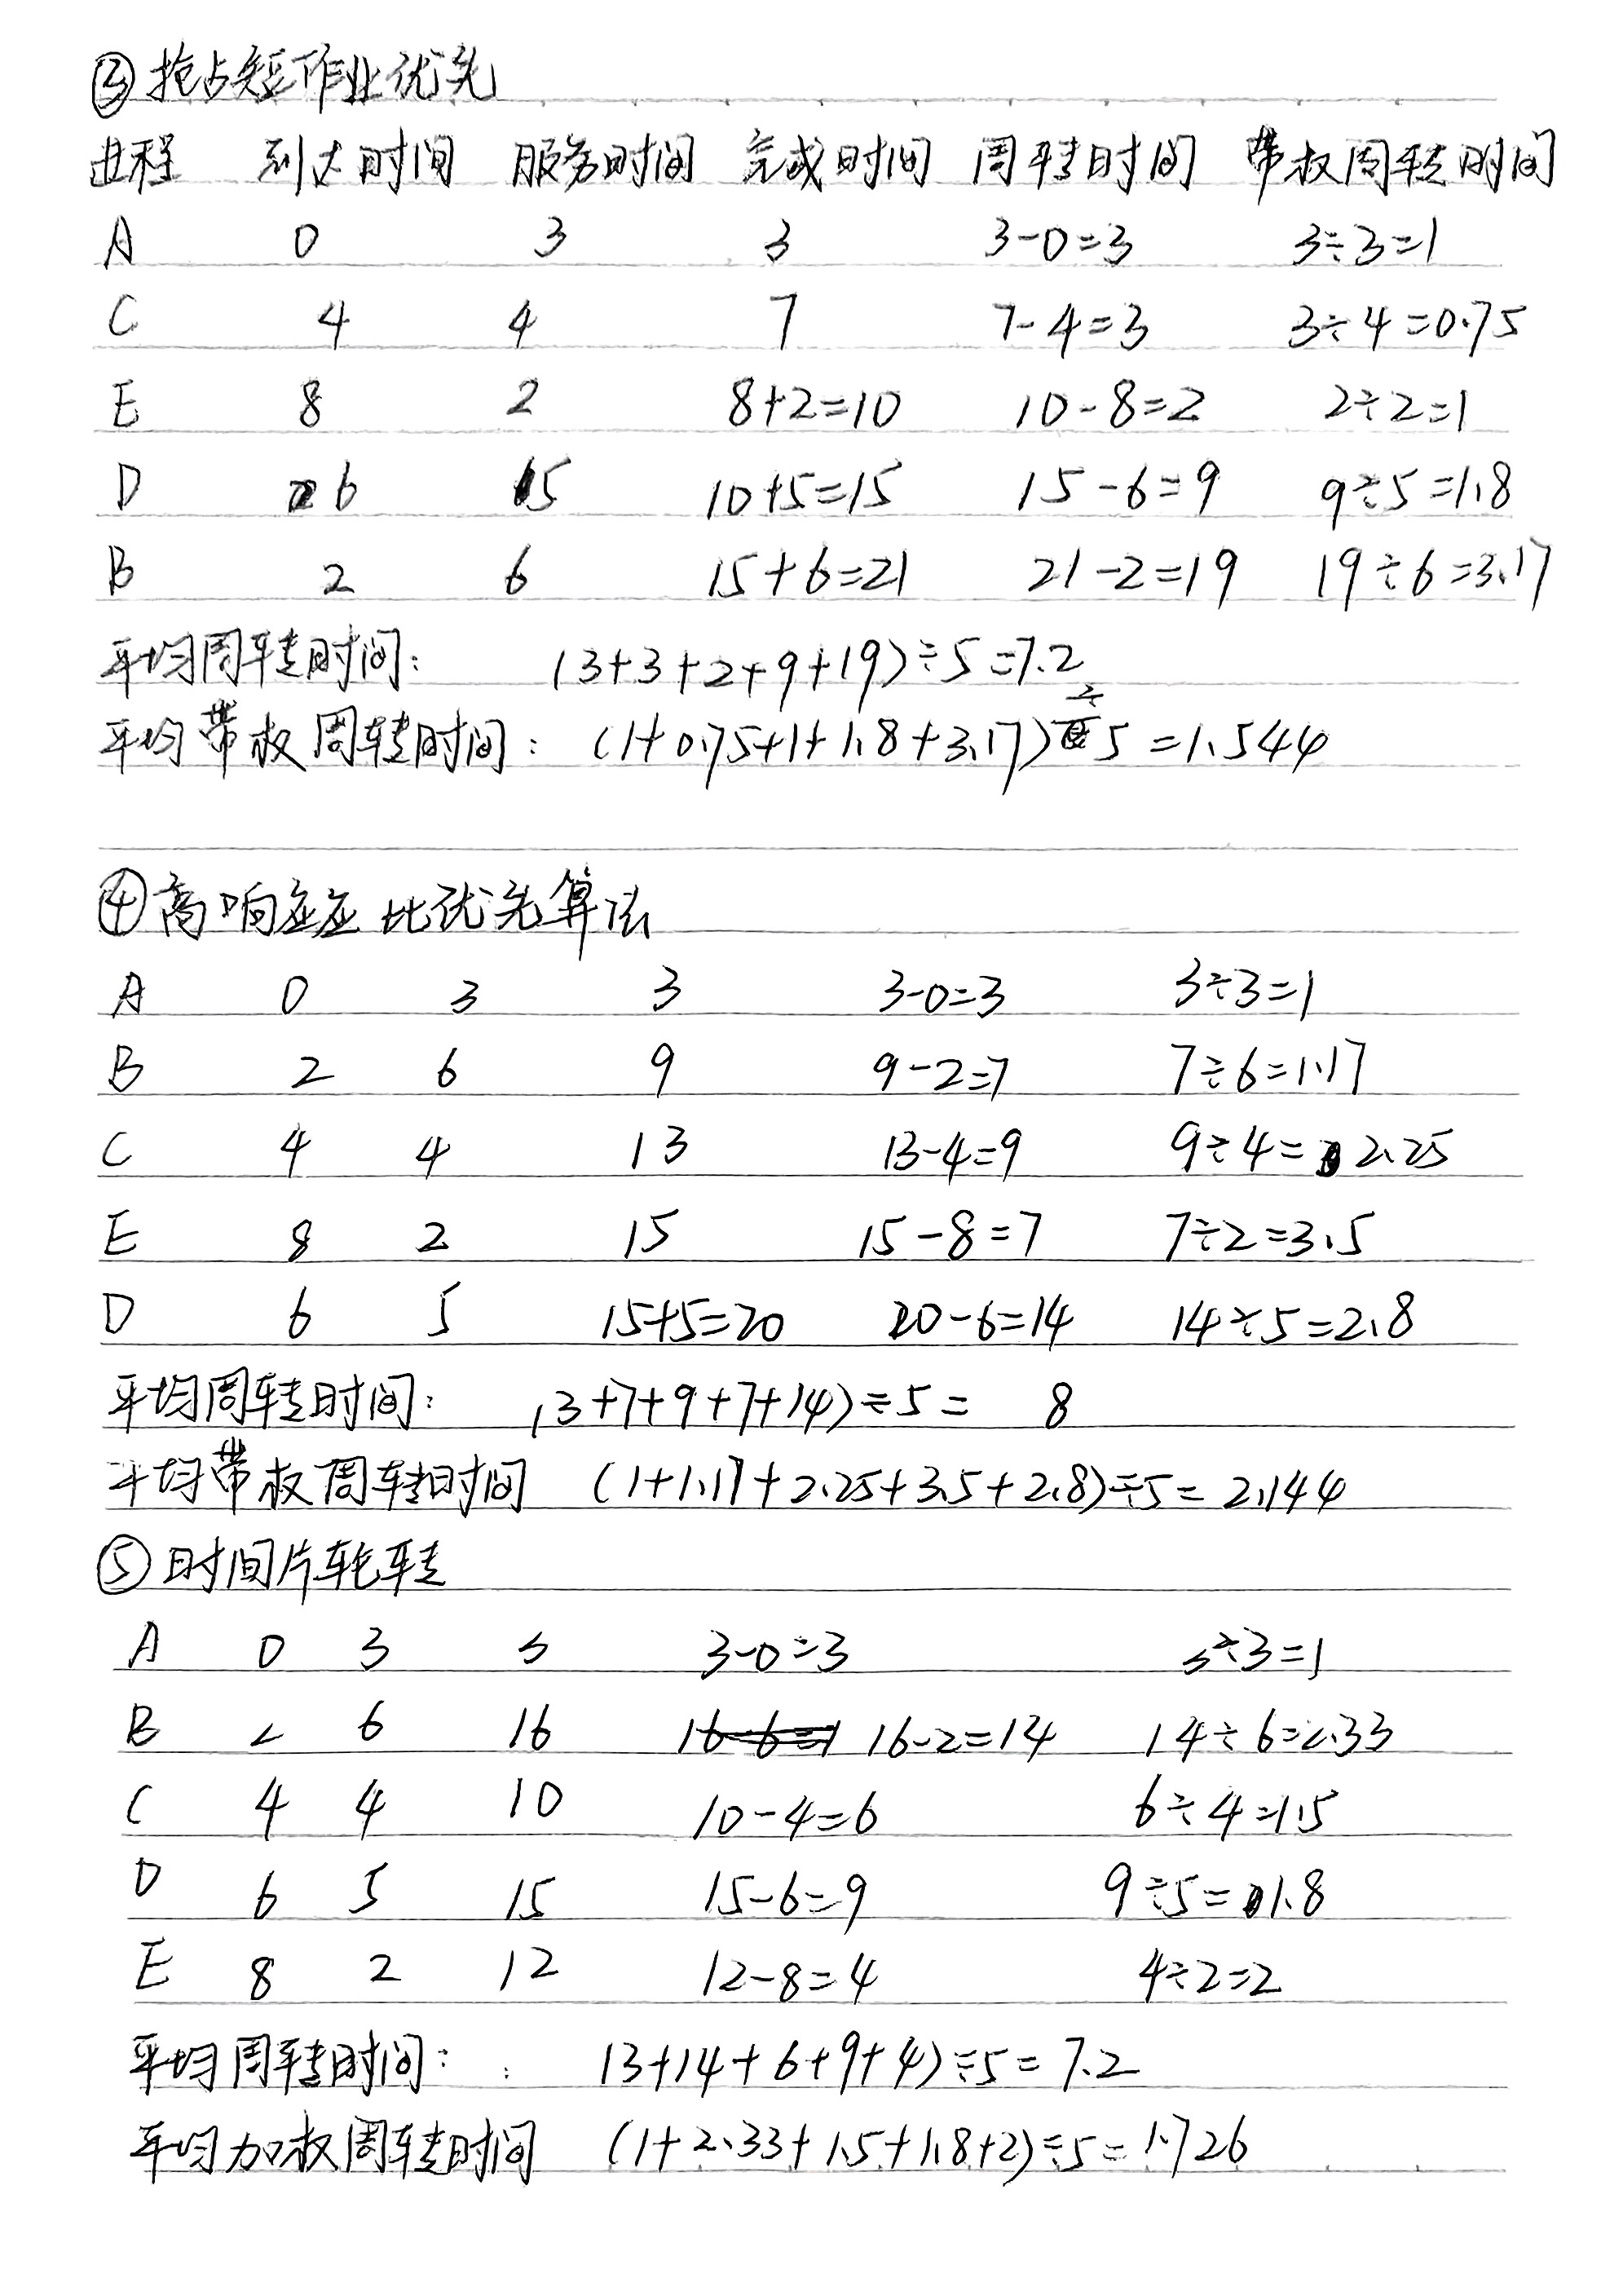 ③抢占短作业优先
进程 到达时间 服务时间 完成时间 周转时间 带权周转时间
A 0 3 3 3-0=3 3÷3=1
C 4 4 7 7-4=3 3÷4=0.75
E 8 2 8+2=10 10-8=2 2÷2=1
D 6 5 10+5=15 15-6=9 9÷5=1.8
B 2 6 15+6=21 21-2=19 19÷6=3.17
平均周转时间: (3+3+2+9+19)÷5=7.2
平均带权周转时间: (1+0.75+1+1.8+3.17)÷5=1.544
④高响应应比优先算法
A 0 3 3 3-0=3 3÷3=1
B 2 6 9 9-2=7 7÷6=1.17
C 4 4 13 13-4=9 9÷4=2.25
E 8 2 15 15-8=7 7÷2=3.5
D 6 5 15+5=20 20-6=14 14÷5=2.8
平均周转时间: (3+7+9+7+14)÷5= 8
平均带权周转时间 (1+1.17+2.25+3.5+2.8)÷5=2.144
⑤时间片轮转
A 0 3 3 3-0=3 3÷3=1
B 2 6 16 16-2=14 14÷6=2.33
C 4 4 10 10-4=6 6÷4=1.5
D 6 5 15 15-6=9 9÷5=1.8
E 8 2 12 12-8=4 4÷2=2
平均周转时间: (3+14+6+9+4)÷5=7.2
平均加权周转时间 (1+2.33+1.5+1.8+2)÷5=1.726